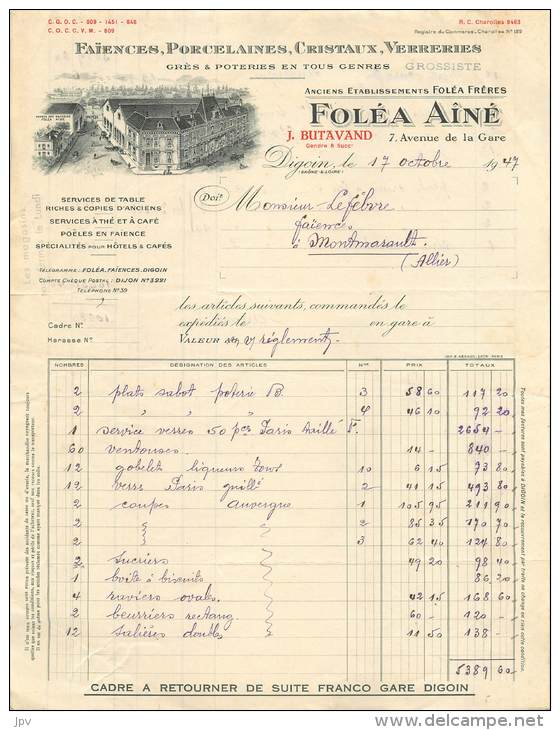 C. G. O. C. - 809 - 1451 - 846
C. O. C. C. V. M. - 809
R. C. Charolles 9463
Registre du Commerce, Charolles N° 189
FAÏENCES, PORCELAINES, CRISTAUX, VERRERIES
GRÈS & POTERIES EN TOUS GENRES GROSSISTE
ANCIENS ETABLISSEMENTS FOLÉA FRÈRES
FOLÉA AÎNÉ
J. BUTAVAND
Gendre & Succr
7, Avenue de la Gare
Digoin, le 17 octobre 1947
(SAÔNE & LOIRE)
Doit
Monsieur Lefébvre
faïences
à Montmarault
(Allier)
SERVICES DE TABLE
RICHES & COPIES D'ANCIENS
SERVICES À THÉ ET À CAFÉ
POËLES EN FAÏENCE
SPÉCIALITÉS POUR HÔTELS & CAFÉS
TÉLÉGRAMME : FOLÉA, FAÏENCES, DIGOIN
COMPTE CHÈQUE POSTAL : DIJON N° 3221
TÉLÉPHONE N° 39
les articles suivants, commandés le
Cadre N° expédiés le en gare à
Harasse N° VALEUR réglement
NOMBRES DÉSIGNATION DES ARTICLES Nos PRIX TOTAUX
2 plats sabot poterie B. 3 58 60 117 20
2 " " " 4 46 10 92 20
1 service verres 50 pces Paris taillé F. 2654 -
60 ventouses 14 - 840 -
12 gobelets liqueurs 10 6 15 73 80
12 verres Paris 2 41 15 493 80
2 coupes auvergne 1 105 95 211 90
2 2 85 35 170 70
2 3 62 40 124 80
2 sucriers 49 20 98 40
1 boîte à biscuits 86 20
4 raviers ovales 42 15 168 60
2 beurriers rectang. 60 - 120 -
12 salières doubles 11 50 138 -
5389 60
CADRE A RETOURNER DE SUITE FRANCO GARE DIGOIN
Toutes mes factures sont payables à DIGOIN et le recouvrement par traite ne change en rien cette condition.
jpv
www.delcampe.net